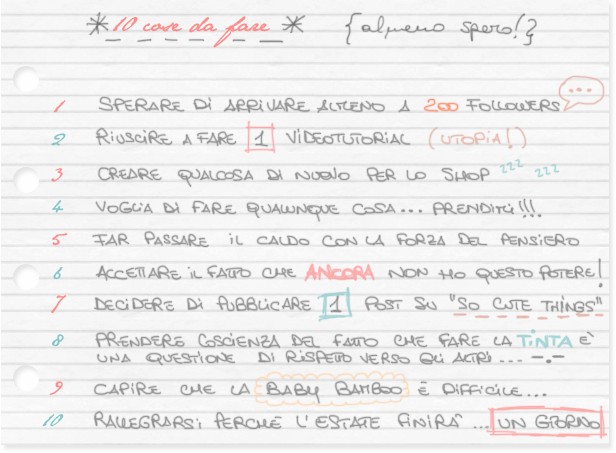 *10 cose da fare* {almeno spero!}
...
1 SPERARE DI ARRIVARE ALMENO A 200 FOLLOWERS
2 RIUSCIRE A FARE 1 VIDEOTUTORIAL (UTOPIA!)
3 CREARE QUALCOSA DI NUOVO PER LO SHOP zzz zzz
4 VOGLIA DI FARE QUALUNQUE COSA... PRENDIMI!!!
5 FAR PASSARE IL CALDO CON LA FORZA DEL PENSIERO
6 ACCETTARE IL FATTO CHE ANCORA NON HO QUESTO POTERE!
7 DECIDERE DI PUBBLICARE 1 POST SU "SO CUTE THINGS"
8 PRENDERE COSCIENZA DEL FATTO CHE FARE LA TINTA È
UNA QUESTIONE DI RISPETTO VERSO GLI ALTRI ... -.-
9 CAPIRE CHE LA BABY BAMBOO È DIFFICILE...
10 RALLEGRARSI PERCHÈ L'ESTATE FINIRÀ ... UN GIORNO